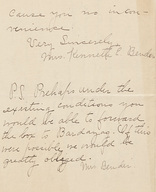 Cause you no incon-
venience.
Very Sincerely,
Mrs. Kenneth E. Bender

P.S. Perhaps under the
existing conditions you
would be able to forward
the box to  If this
were possible, we would be
greatly obliged.
Mrs Bender